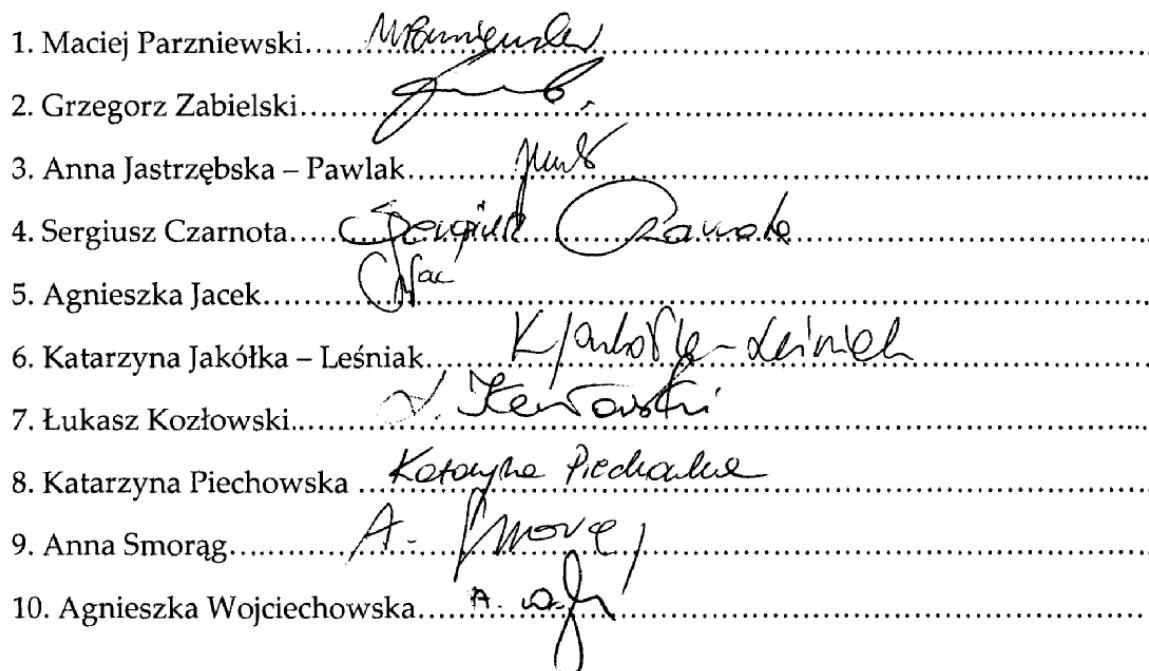 1. Maciej Parzniewski................
2. Grzegorz Zabielski................
3. Anna Jastrzębska – Pawlak................
4. Sergiusz Czarnota................ Sergiusz Czarnota
5. Agnieszka Jacek................
6. Katarzyna Jakółka – Leśniak................ K Jakółka-Leśniak
7. Łukasz Kozłowski................ Ł. Kozłowski
8. Katarzyna Piechowska ................ Katarzyna Piechowska
9. Anna Smorąg................ A. Smorąg
10. Agnieszka Wojciechowska................ A. Wo